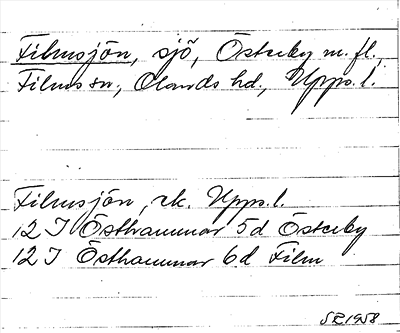 Filmsjön, sjö, Österby m. fl.,
Films sn, Olands hd., Upps. l.
Filmsjön, rk. Upps. l.
12 I Östhammar 5d Österby
12 I Östhammar 6d Film
SR 1958